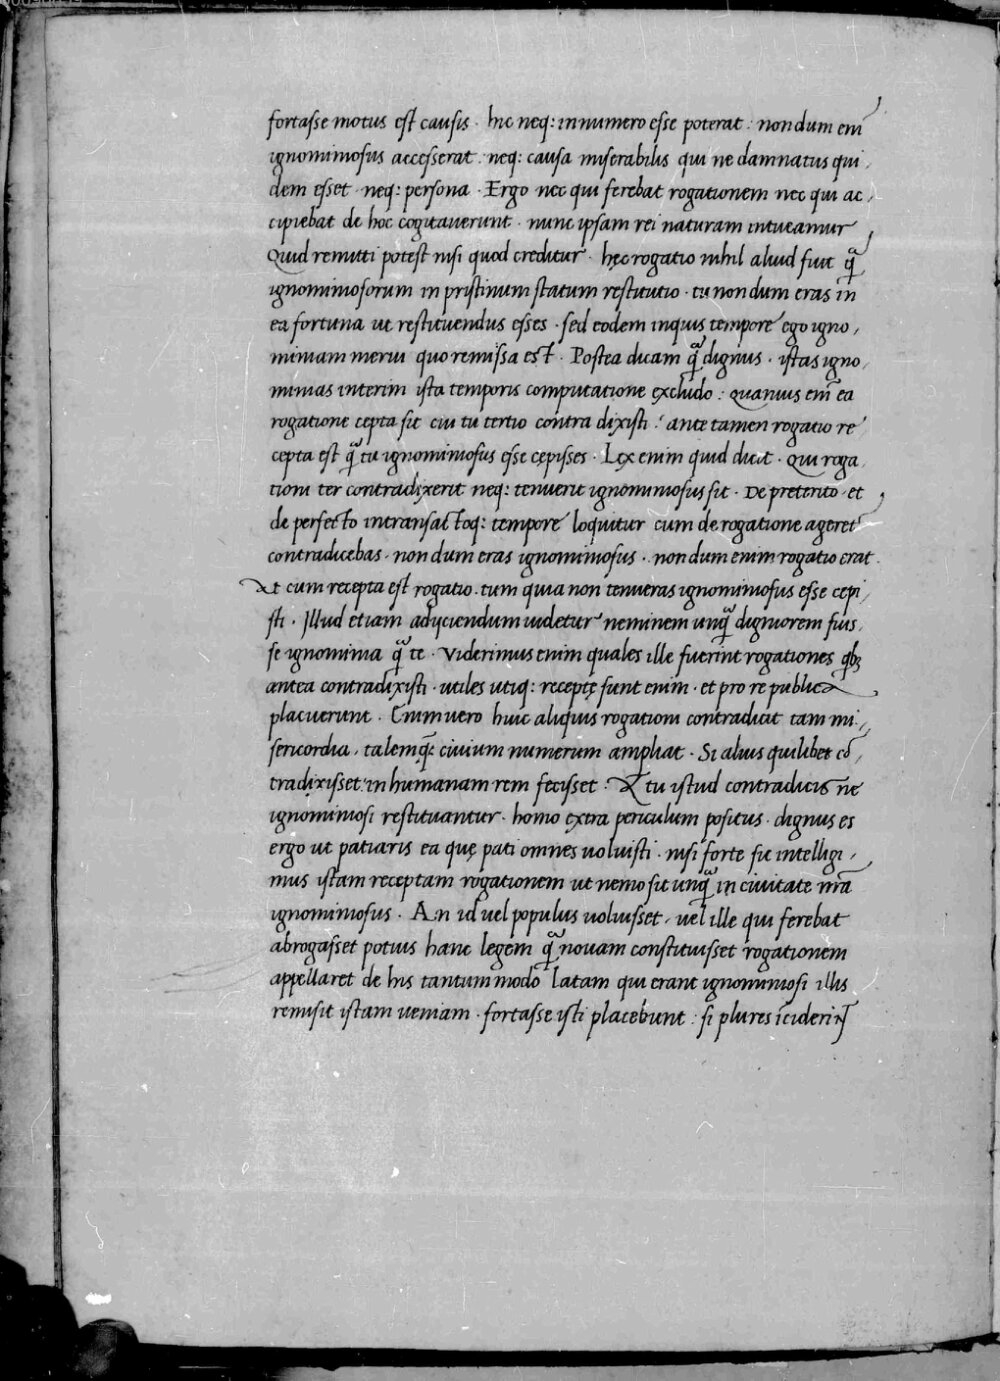 fortasse motus est causis · hic neq: in numero esse poterat : nondum em̄
ignominiosus accesserat · neq: causa miserabilis qui ne damnatus qui,
dem esset · neq: persona · Ergo nec qui ferebat rogationem nec qui ac,
cipiebat de hoc cogitauerunt · nunc ipsam rei naturam intueamur
Quid remitti potest nisi quod creditur · hęc rogatio nihil aliud fuit q̃
ignominiosorum in pristinum statum restitutio · tu nondum eras in
ea fortuna ut restituendus esses · sed eodem inquis tempore ego igno,
miniam merui quo remissa est · Postea dicam q̃ dignus · istas igno,
minias interim ista temporis computatione excludo : Quamuis em̄ ea
rogatione cepta sit cui tu tertio contra dixisti : ante tamen rogatio re
cepta est q̃ tu ignominiosus esse cępisses · Lex enim quid dicit · Qui roga,
tioni ter contradixerit neq: tenuerit ignominiosus sit · De preterito · et,
de perfecto intransactoq: tempore loquitur cum de rogatione ageret
contradicebas · nondum eras ignominiosus · nondum enim rogatio erat
At cum recepta est rogatio · tum quia non tenueras ignominiosus esse cepi,
sti · Illud etiam adijciendum uidetur neminem unq̃ digniorem fuis,
se ignominia q̃ te · Viderimus enim quales ille fuerint rogationes qb;
antea contradixisti · utiles utiq: receptę sunt enim · et pro re publica
placuerunt · Enimuero huic aliquis rogationi contradicit tam mi,
sericordia · talemq̃: ciuium numerum ampliat · Si alius quilibet cō,
tradixisset inhumanam rem fecisset · Et tu istud contradicis ne
ignominiosi restituantur · homo extra periculum positus · dignus es
ergo ut patiaris ea quę pati omnes uoluisti · nisi forte sic intelligi,
mus istam receptam rogationem ut nemo sit unq̃ in ciuitate nr̄a
ignominiosus · An id uel populus uoluisset · uel ille qui ferebat
abrogasset potius hanc legem q̃ nouam constituisset rogationem
appellaret de his tantummodo latam qui erant ignominiosi illis
remisit istam ueniam · fortasse isti placebunt : si plures īciderint